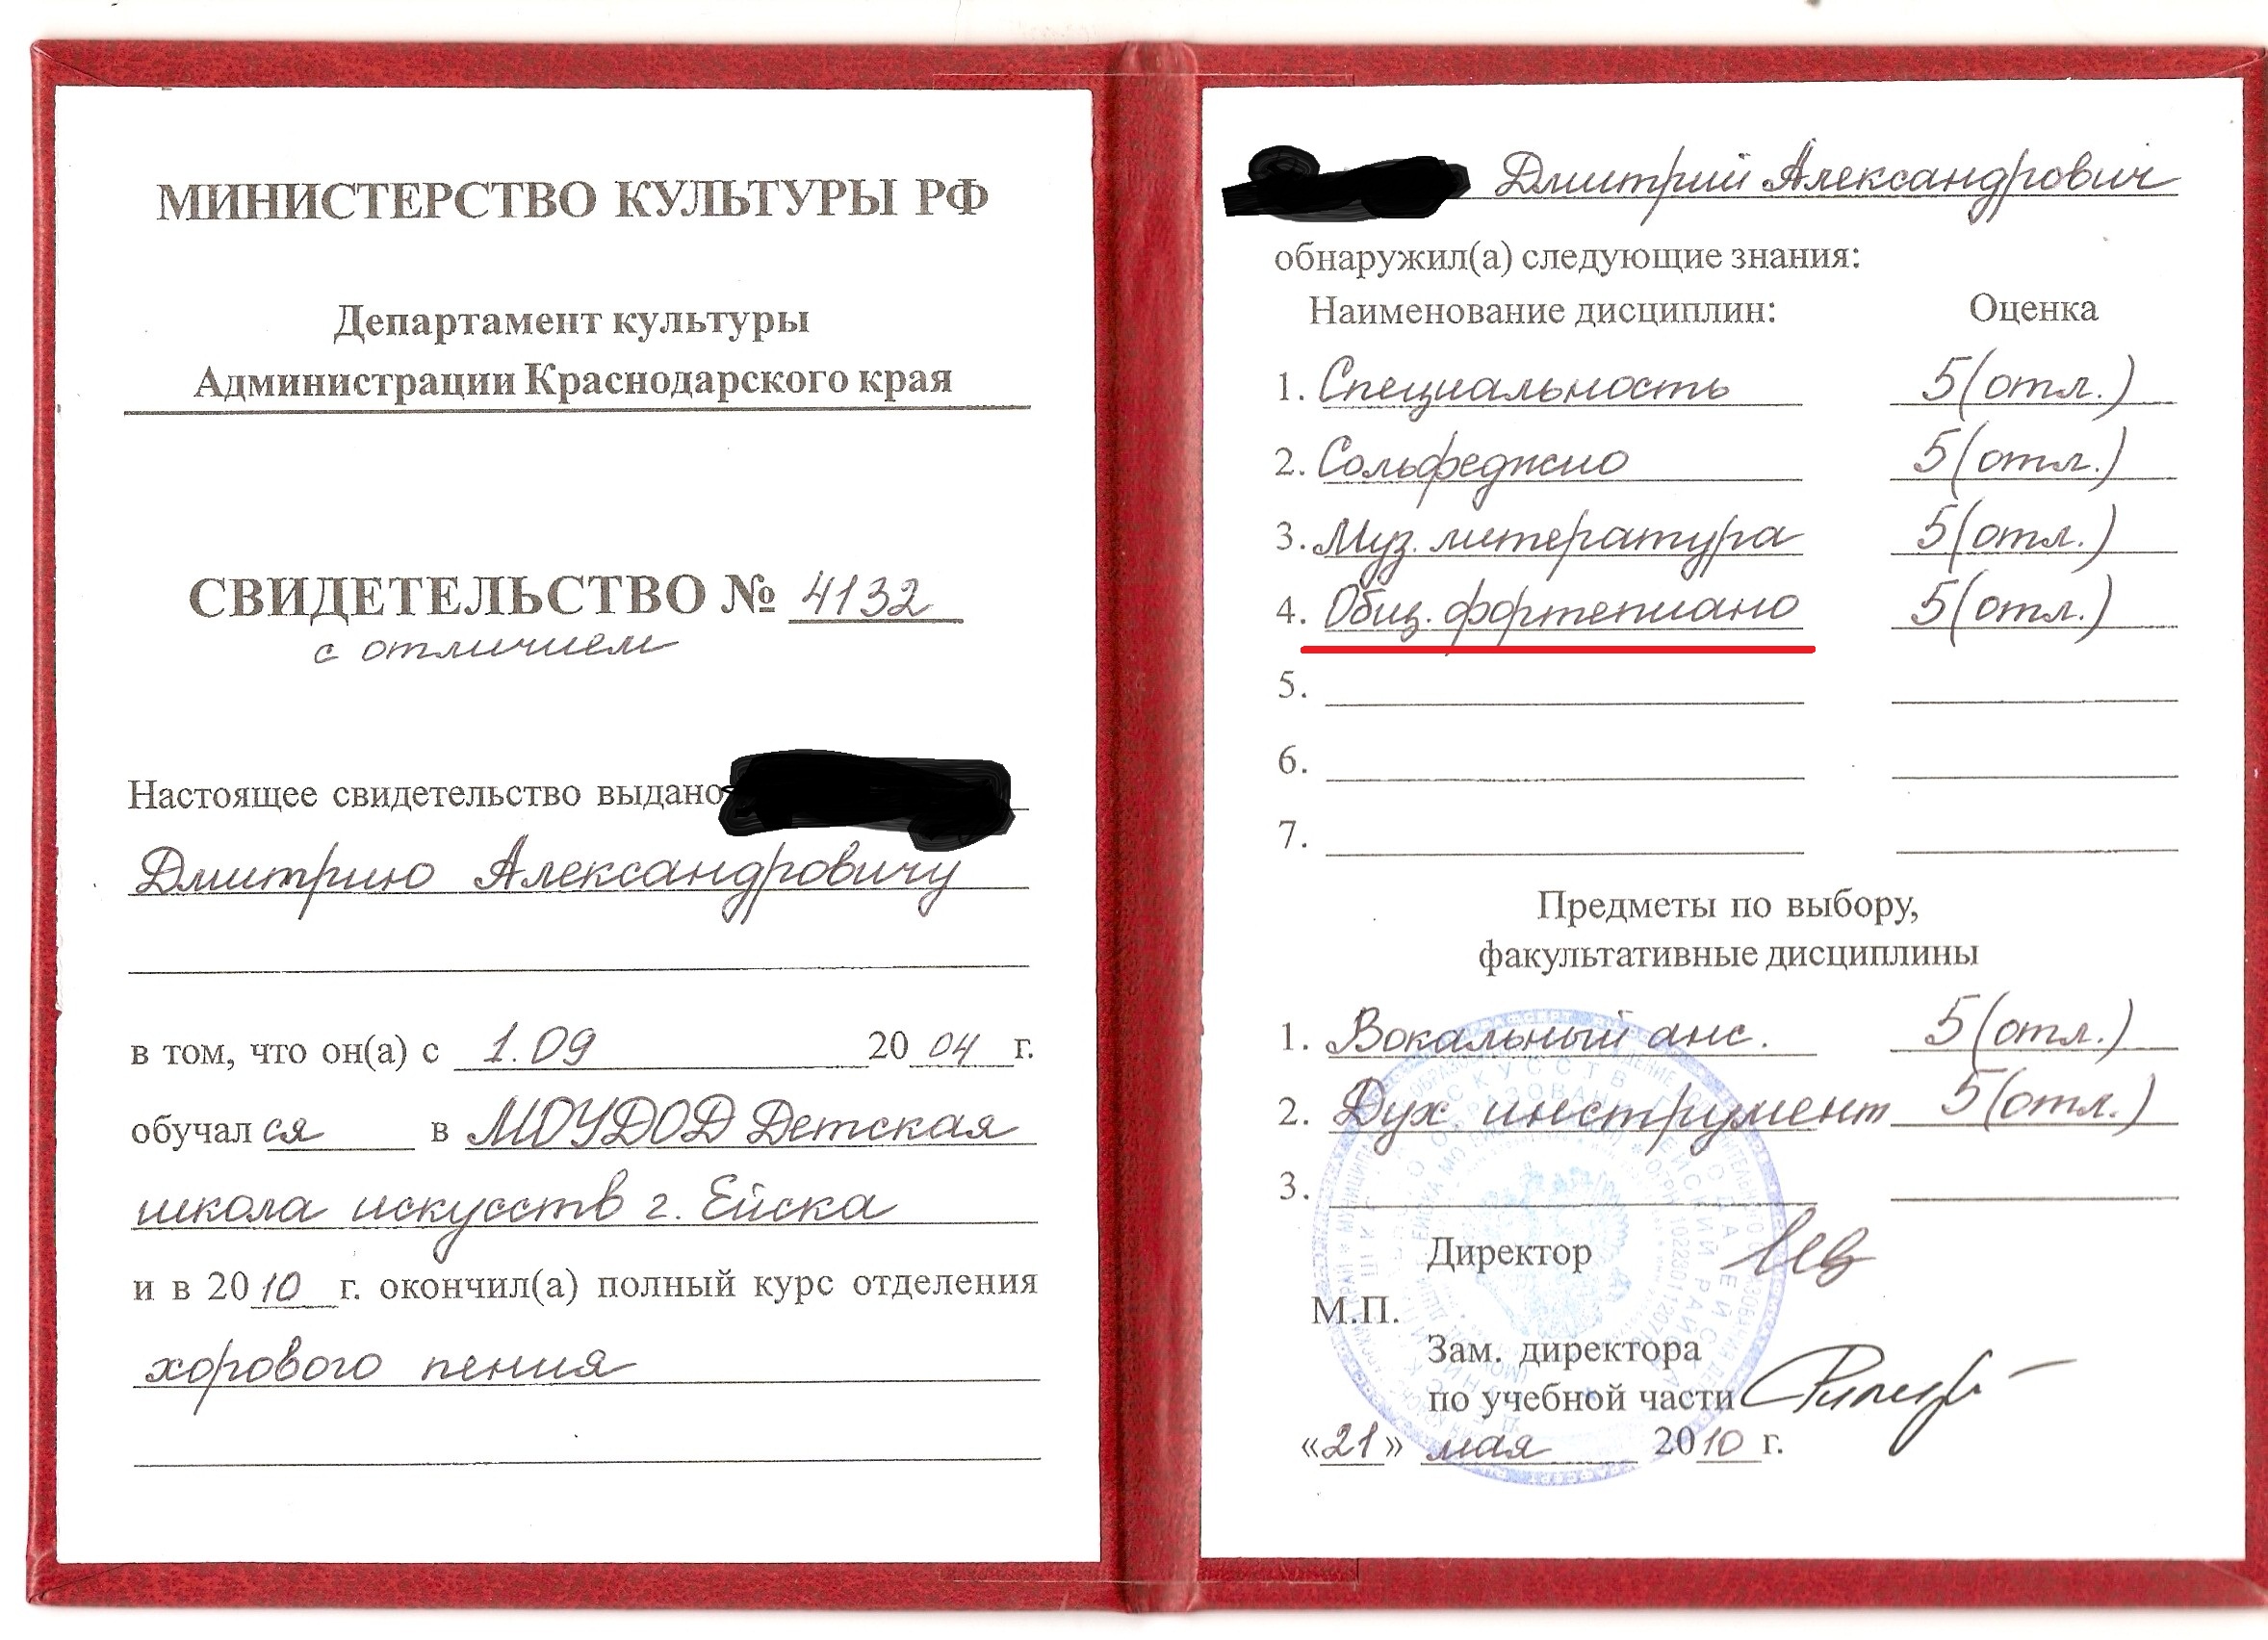 МИНИСТЕРСТВО КУЛЬТУРЫ РФ
Департамент культуры
Администрации Краснодарского края
СВИДЕТЕЛЬСТВО № 4132
с отличием
Настоящее свидетельство выдано
Дмитрию Александровичу
в том, что он(а) с 1.09 2004 г.
обучался в МОУДОД Детская
школа искусств г. Ейска
и в 2010 г. окончил(а) полный курс отделения
хорового пения
Дмитрий Александрович
обнаружил(а) следующие знания:
Наименование дисциплин: Оценка
1. Специальность 5 (отл.)
2. Сольфеджио 5 (отл.)
3. Муз. литература 5 (отл.)
4. Общ. фортепиано 5 (отл.)
5.
6.
7.
Предметы по выбору,
факультативные дисциплины
1. Вокальный анс. 5 (отл.)
2. Дух инструмент 5 (отл.)
3.
Директор
М.П.
Зам. директора
по учебной части
«21» мая 2010 г.